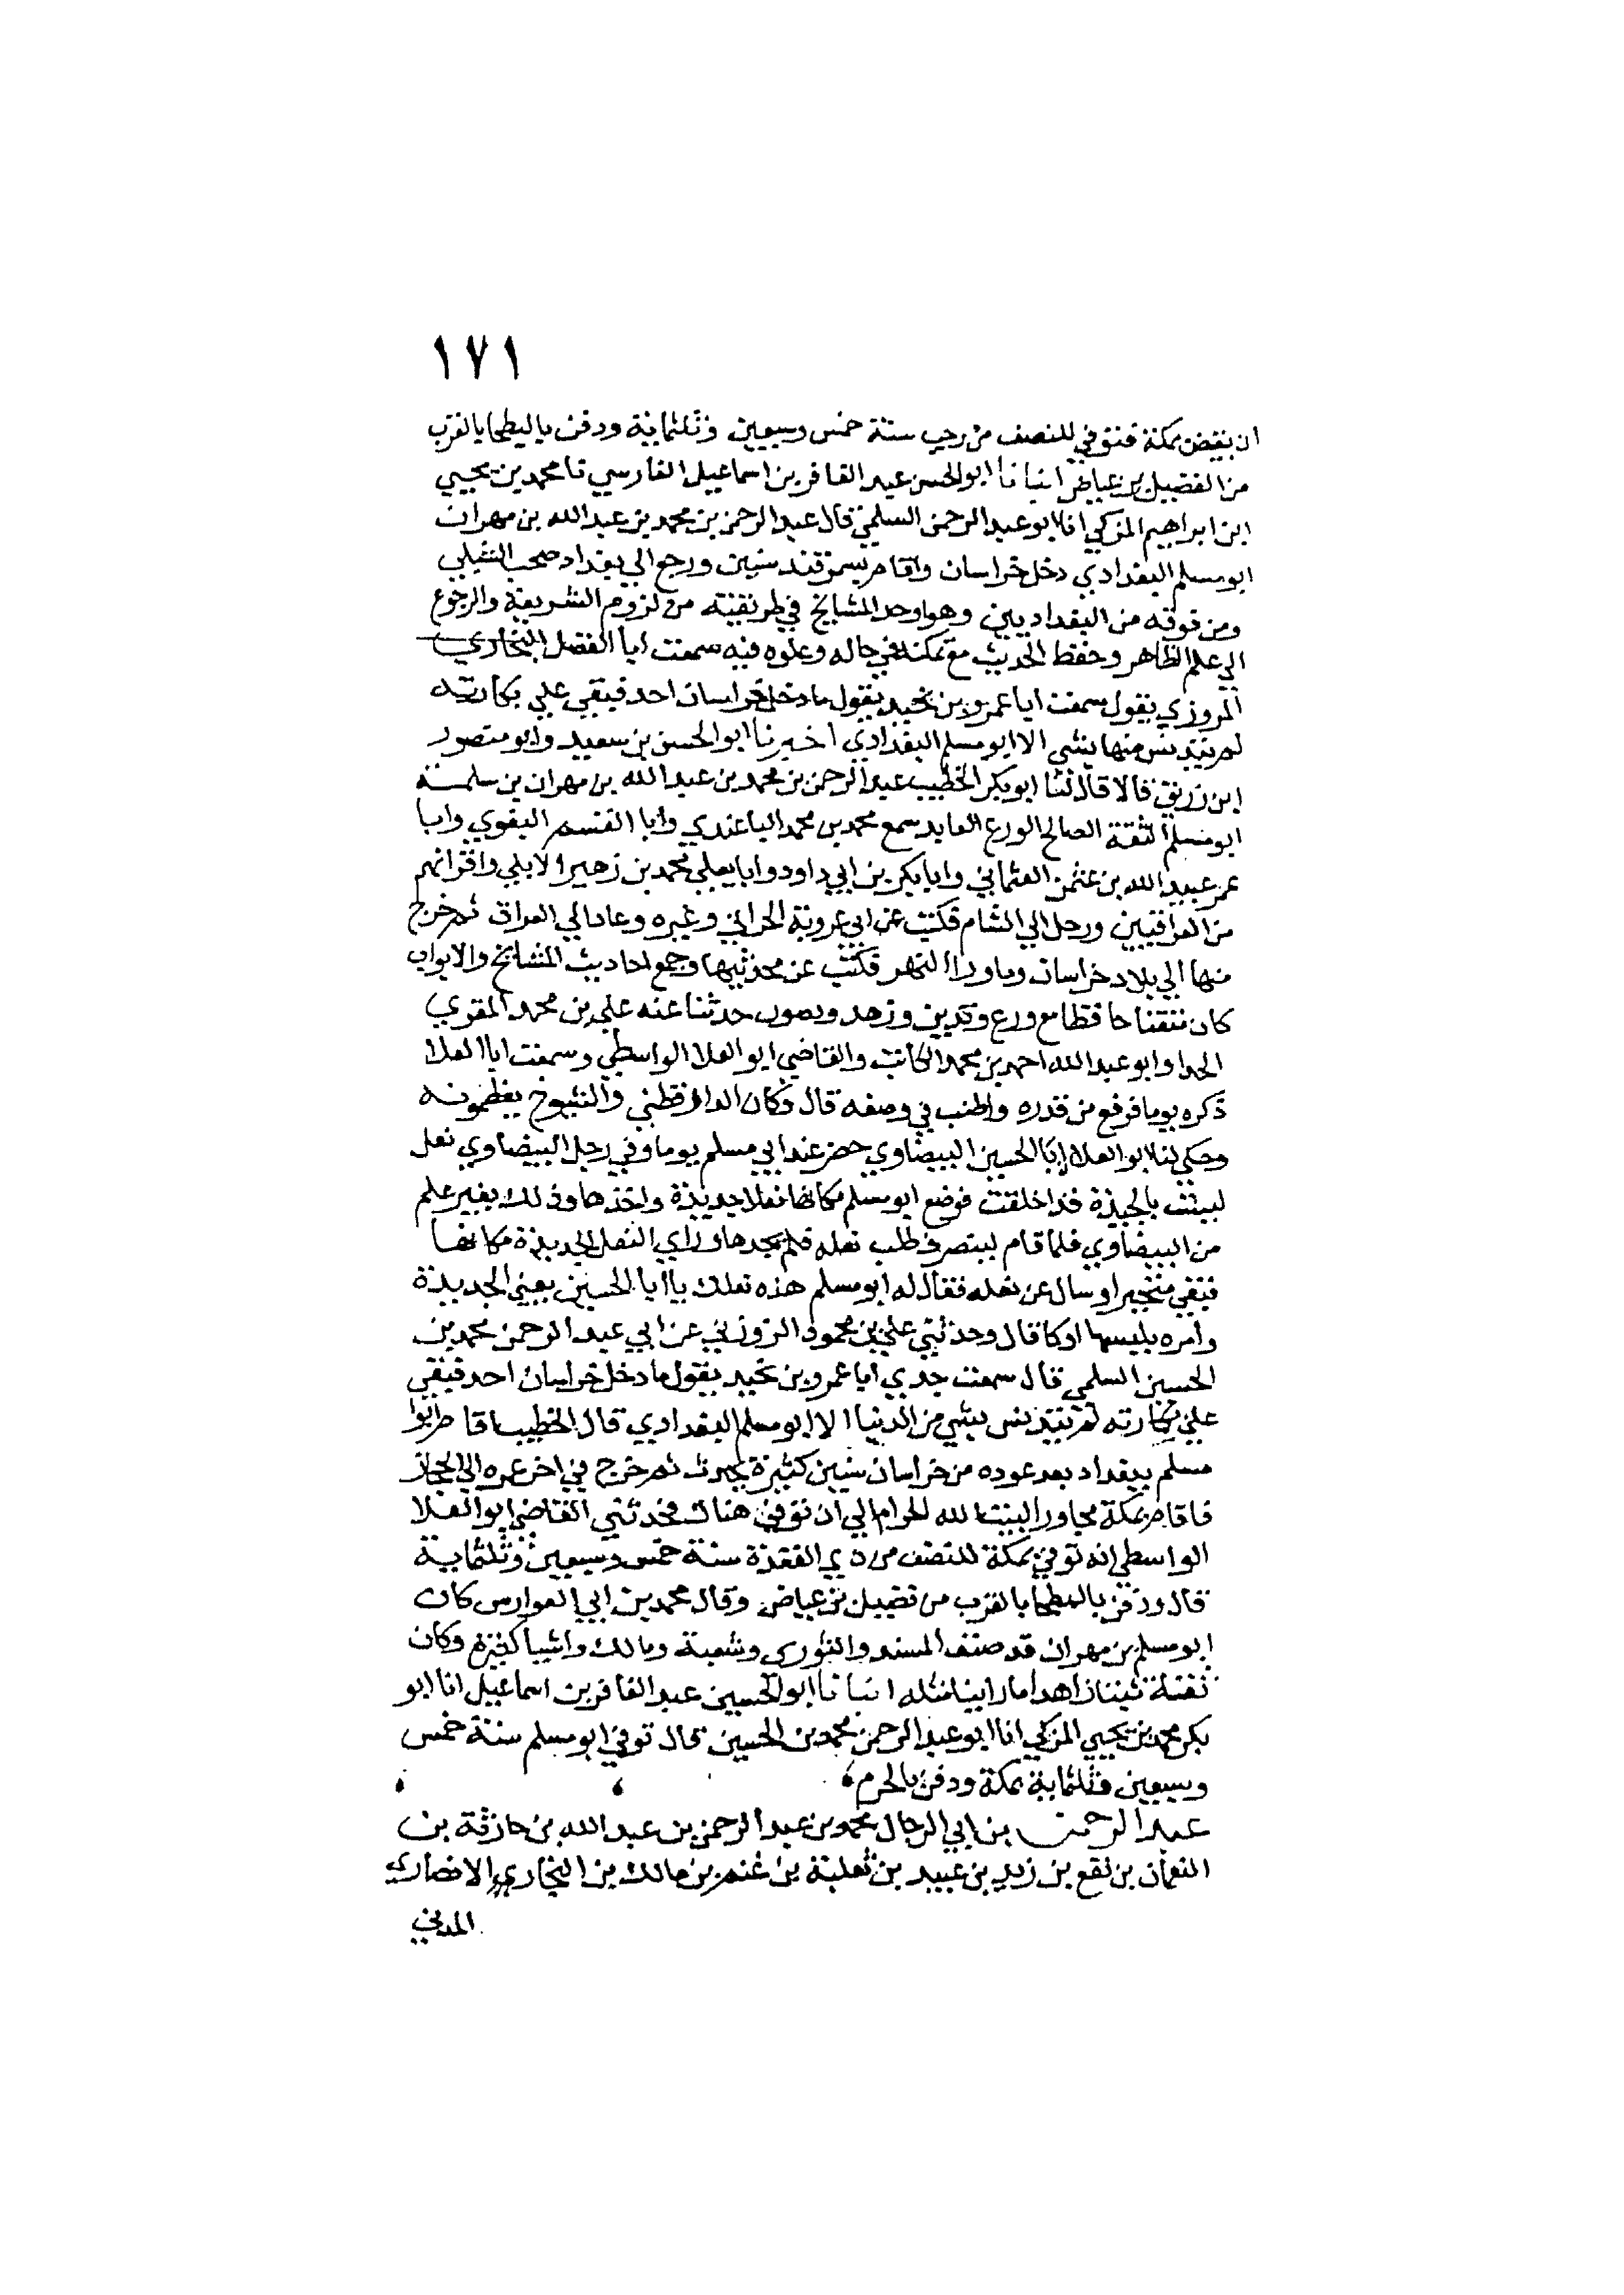 ١٧١
ان يقبض بمكة فتوفي للنصف من رجب سنة خمس وسبعين وثلثماية ودفن بالبطحا بالقرب
من الفضيل بن عياض انبانا ابو الحسن عبد الغافر بن اسماعيل الفارسي نا محمد بن يحيي
ابن ابراهيم المزكي انا ابو عبد الرحمن السلمي قال عبد الرحمن بن محمد بن عبد الله بن مهران
ابو مسلم البغدادي دخل خراسان واقام بسمرقند سنين ورجع الي بغداد صحب الشبلي
ومن فوقه من البغداديين وهو اوحد المشايخ في طريقته من لزوم الشريعة والرجوع
الي علم الظاهر وحفظ الحديث مع تمكنه في حاله وعلوه فيه سمعت ابا الفضل البخاري
المروزي يقول سمعت ابا عمرو بن نجيد يقول ما دخل خراسان احد فبقي علي بكارته
لم يتدنس منها بشي الا ابو مسلم البغدادي اخبرنا ابو الحسن بن سعيد وابو منصور
ابن زريق قالا قال لنا ابو بكر الخطيب عبد الرحمن بن محمد بن عبد الله بن مهران بن سلمة
ابو مسلم الثقة الصالح الورع العابد سمع محمد بن محمد الباغندي وابا القسم البغوي وابا
عمر عبيد الله بن عثمن العثماني وابا بكر بن ابي داود وابا يعلي محمد بن زهير الابلي واقرانهم
من العراقيين ورحل الي الشام فكتب عن ابي عروبة الحراني وغيره وعاد الي العراق ثم خرج
منها الي بلاد خراسان وما ورا النهر فكتب عن محدثيها وجمع احاديث المشايخ والابواب
كان متقنا حافظا مع ورع وتدين وزهد وتصون حدثنا عنه علي بن محمد المقري
الحدا وابو عبد الله احمد بن محمد الكاتب والقاضي ابو العلا الواسطي وسمعت ابا العلا
ذكره يوما فرفع من قدره واطنب في وصفه قال وكان الدارقطني والشيوخ يعظمونه
وحكي لنا ابو العلا ان ابا الحسين البيضاوي حضر عند ابي مسلم يوما وفي رجل البيضاوي نعل
ليست بالجيدة قد اخلقت فوضع ابو مسلم مكانها نعلا جديدة واخذها وذلك بغير علم
من البيضاوي فلما قام لينصرف طلب نعله فلم يجدها وراي النعل الجديدة مكانها
فبقي متحيرا وسال عن نعله فقال له ابو مسلم هذه نعلك يا ابا الحسين يعني الجديدة
وامره بلبسها او كما قال وحدثني علي بن محمود الزوزني عن ابي عبد الرحمن محمد بن
الحسين السلمي قال سمعت جدي ابا عمرو بن نجيد يقول ما دخل خراسان احد فبقي
علي بكارته لم يتدنس بشي من الدنيا الا ابو مسلم البغدادي قال الخطيب اقام ابو
مسلم ببغداد بعد عوده من خراسان سنين كثيرة يحدث ثم خرج في اخر عمره الي الحجاز
فاقام بمكة مجاورا لبيت الله الحرام الي ان توفي هناك فحدثني القاضي ابو العلا
الواسطي انه توفي بمكة للنصف من ذي القعدة سنة خمس وسبعين وثلثماية
قال ودفن بالبطحا بالقرب من فضيل بن عياض وقال محمد بن ابي الفوارس كان
ابو مسلم بن مهران قد صنف المسند والثوري وشعبة ومالك واشيا كثيرة وكان
ثقة ثبتا زاهدا ما راينا مثله انبانا ابو الحسين عبد الغافر بن اسماعيل انا ابو
بكر محمد بن يحيي المزكي انا ابو عبد الرحمن محمد بن الحسين قال توفي ابو مسلم سنة خمس
وسبعين وثلثماية بمكة ودفن بالحرم
عبد الرحمن بن ابي الرجال محمد بن عبد الرحمن بن عبد الله بن حارثة بن
النعمان بن نفع بن زيد بن عبيد بن ثعلبة بن غنم بن مالك بن النجاري الانصاري
المدني